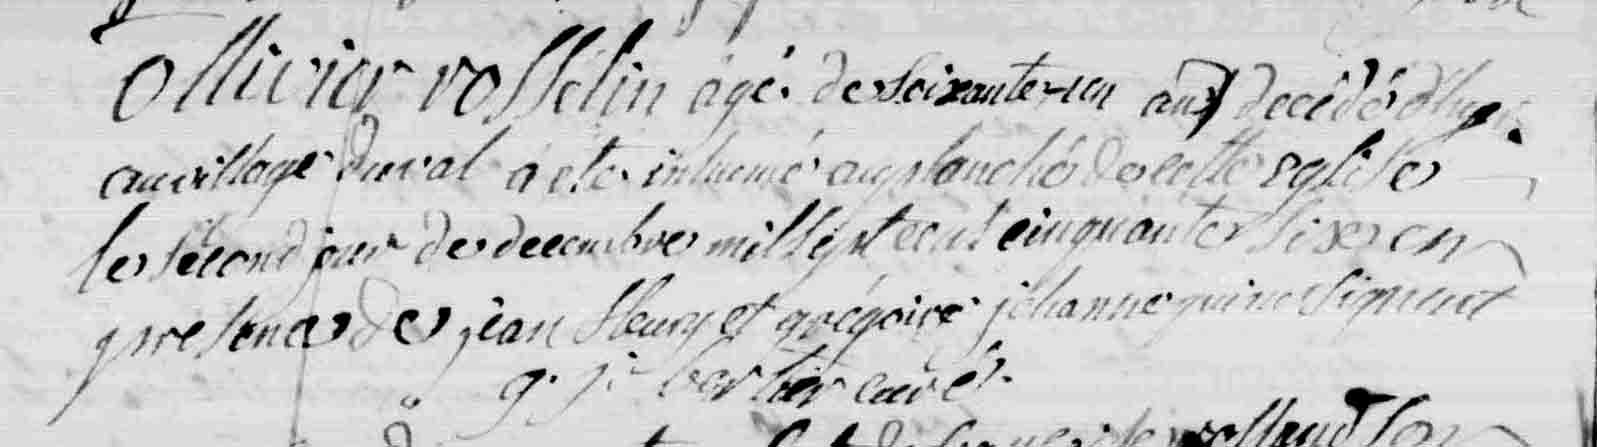 ollivier rossélin agé de soixante un ans decedé d'hyer
au village du val a ete inhumé au planché de cette eglise
le second jour de decembre mil sept cent cinquante six en
presence de jean fleury et grégoire jehanne qui ne signent
g. j. berthier curé